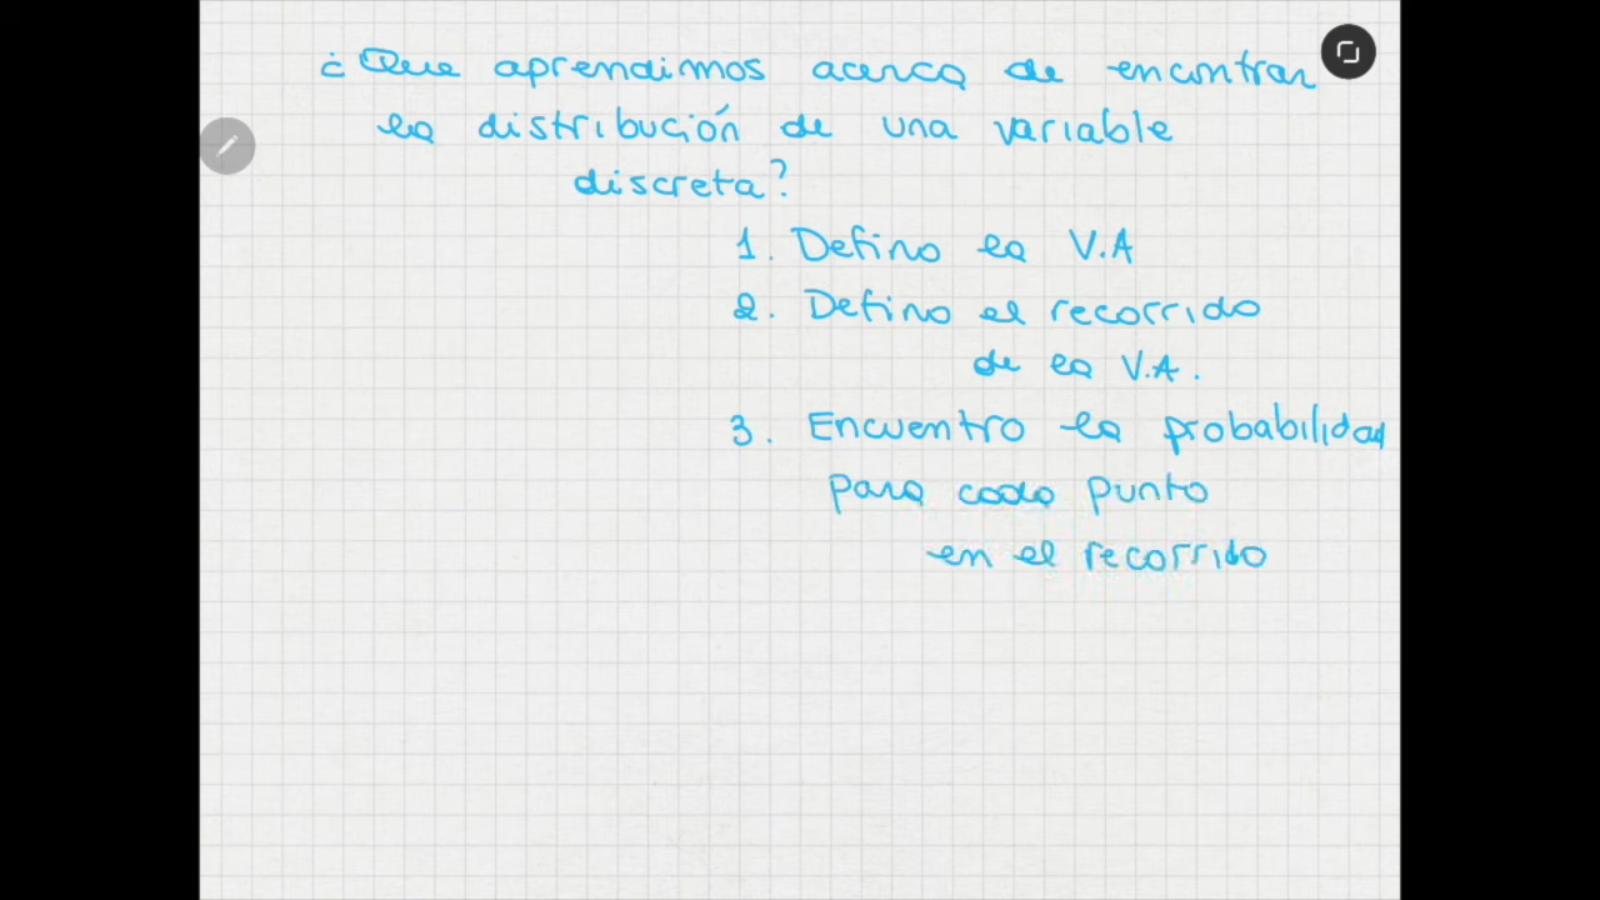 ¿Que aprendimos acerca de encontrar
la distribución de una variable
discreta?
1. Defino la V.A
2. Defino el recorrido
de la V.A.
3. Encuentro la probabilidad
para cada punto
en el recorrido